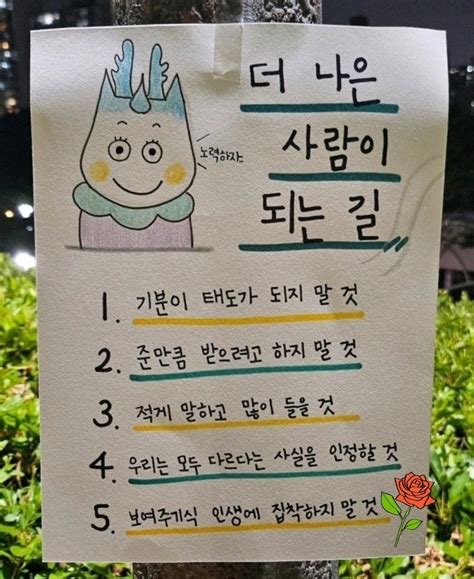 더 나은
사람이
되는 길
노력하자!
1. 기분이 태도가 되지 말 것
2. 준만큼 받으려고 하지 말 것
3. 적게 말하고 많이 들을 것
4. 우리는 모두 다르다는 사실을 인정할 것
5. 보여주기식 인생에 집착하지 말 것